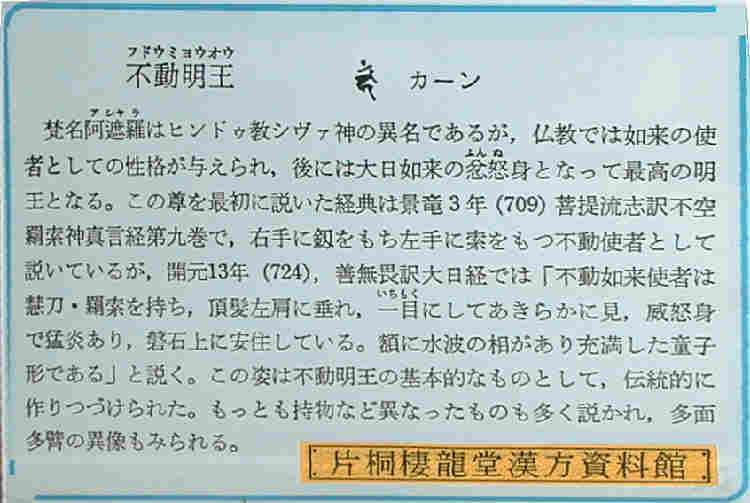 フドウミョウオウ
不動明王 カーン
アシャラ
梵名阿遮羅はヒンドゥ教シヴァ神の異名であるが，仏教では如来の使
者としての性格が与えられ，後には大日如来の忿怒身となって最高の明
ふんぬ
王となる。この尊を最初に説いた経典は景竜3年 (709) 菩提流志訳不空
羂索神真言経第九巻で，右手に釼をもち左手に索をもつ不動使者として
説いているが，開元13年 (724)，善無畏訳大日経では「不動如来使者は
慧刀・羂索を持ち，頂髪左肩に垂れ，一目にしてあきらかに見，威怒身
いちもく
で猛炎あり，磐石上に安住している。額に水波の相があり充満した童子
形である」と説く。この姿は不動明王の基本的なものとして，伝統的に
作りつづけられた。もっとも持物など異なったものも多く説かれ，多面
多臂の異像もみられる。
片桐棲龍堂漢方資料館